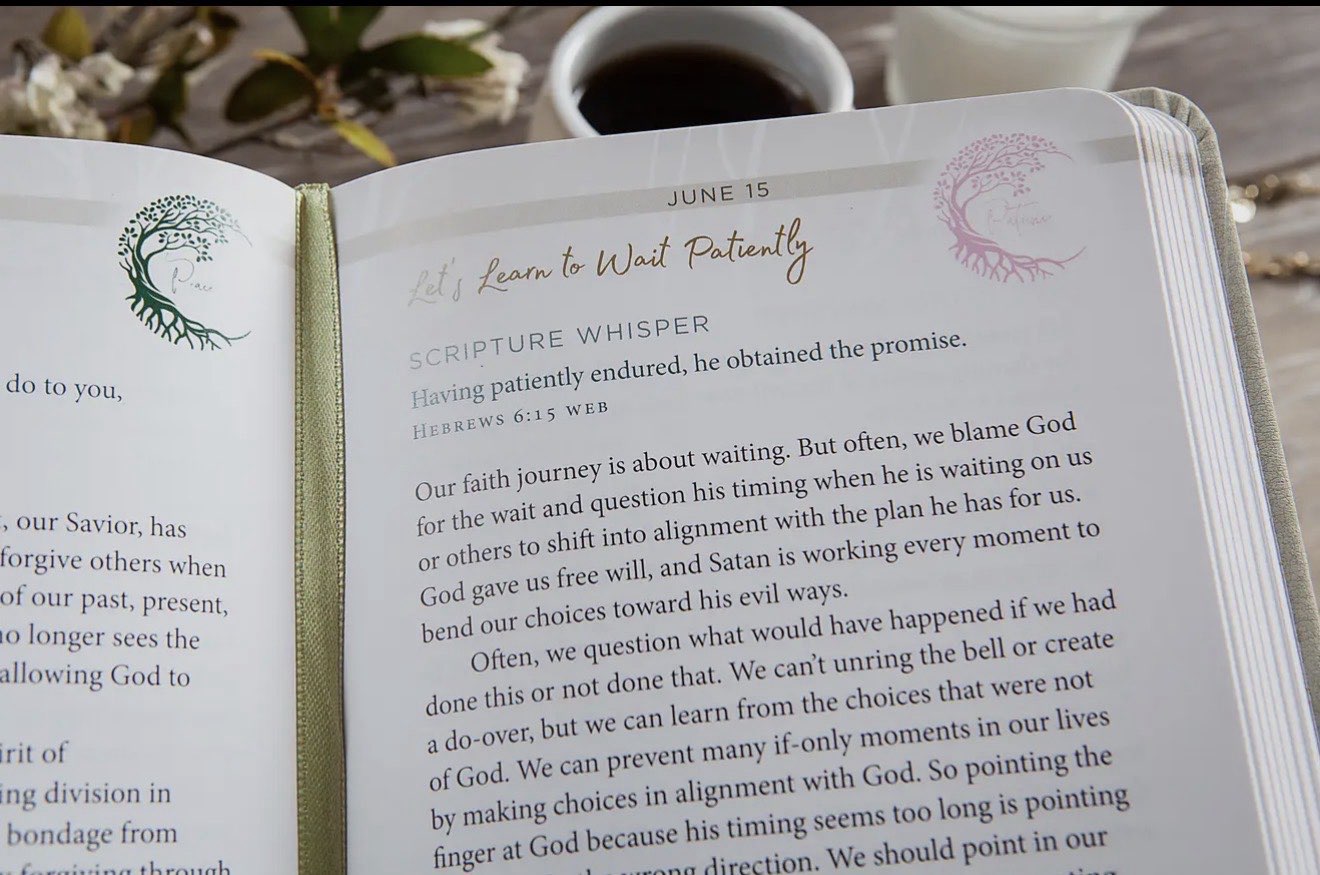 Peace
do to you,
, our Savior, has
forgive others when
of our past, present,
no longer sees the
allowing God to
irit of
ing division in
bondage from
forgiving through
JUNE 15
Patience
Let's Learn to Wait Patiently
SCRIPTURE WHISPER
Having patiently endured, he obtained the promise.
HEBREWS 6:15 WEB
Our faith journey is about waiting. But often, we blame God
for the wait and question his timing when he is waiting on us
or others to shift into alignment with the plan he has for us.
God gave us free will, and Satan is working every moment to
bend our choices toward his evil ways.
Often, we question what would have happened if we had
done this or not done that. We can't unring the bell or create
a do-over, but we can learn from the choices that were not
of God. We can prevent many if-only moments in our lives
by making choices in alignment with God. So pointing the
finger at God because his timing seems too long is pointing
wrong direction. We should point in our